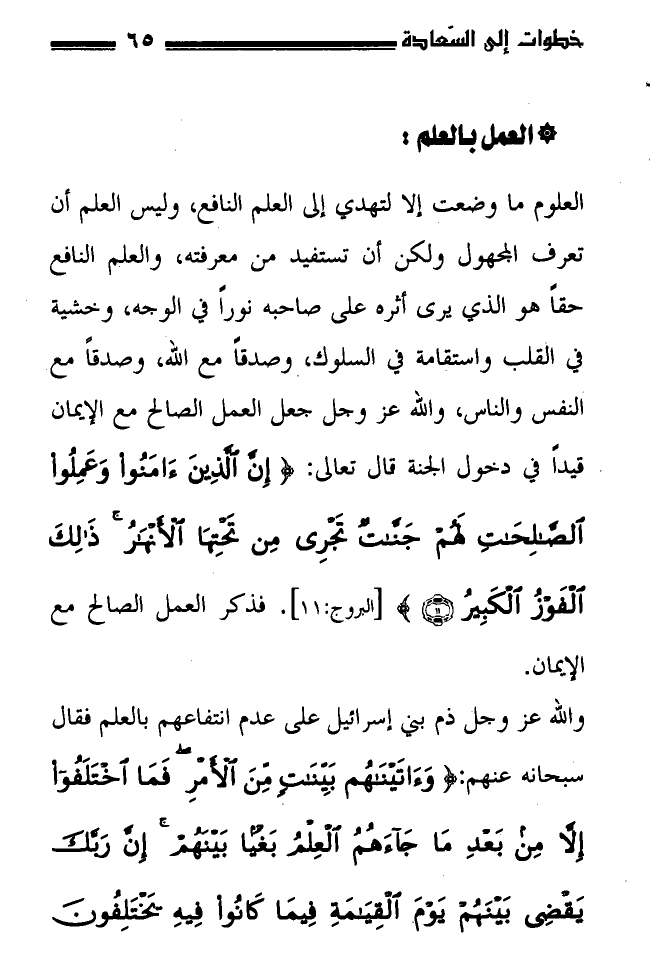 خطوات إلى السّعادة ٦٥
۞ العمل بالعلم :
العلوم ما وضعت إلا لتهدي إلى العلم النافع، وليس العلم أن
تعرف المجهول ولكن أن تستفيد من معرفته، والعلم النافع
حقاً هو الذي يرى أثره على صاحبه نوراً في الوجه، وخشية
في القلب واستقامة في السلوك، وصدقاً مع الله، وصدقاً مع
النفس والناس، والله عز وجل جعل العمل الصالح مع الإيمان
قيداً في دخول الجنة قال تعالى: ﴿ إِنَّ ٱلَّذِينَ ءَامَنُوا۟ وَعَمِلُوا۟
ٱلصَّـٰلِحَـٰتِ لَهُمْ جَنَّـٰتٌ تَجْرِى مِن تَحْتِهَا ٱلْأَنْهَـٰرُ ۚ ذَٰلِكَ
ٱلْفَوْزُ ٱلْكَبِيرُ ۝١١ ﴾ [البروج:١١]. فذكر العمل الصالح مع
الإيمان.
والله عز وجل ذم بني إسرائيل على عدم انتفاعهم بالعلم فقال
سبحانه عنهم:﴿ وَءَاتَيْنَـٰهُم بَيِّنَـٰتٍ مِّنَ ٱلْأَمْرِ ۖ فَمَا ٱخْتَلَفُوٓا۟
إِلَّا مِنۢ بَعْدِ مَا جَآءَهُمُ ٱلْعِلْمُ بَغْيًۢا بَيْنَهُمْ ۚ إِنَّ رَبَّكَ
يَقْضِى بَيْنَهُمْ يَوْمَ ٱلْقِيَـٰمَةِ فِيمَا كَانُوا۟ فِيهِ يَخْتَلِفُونَ